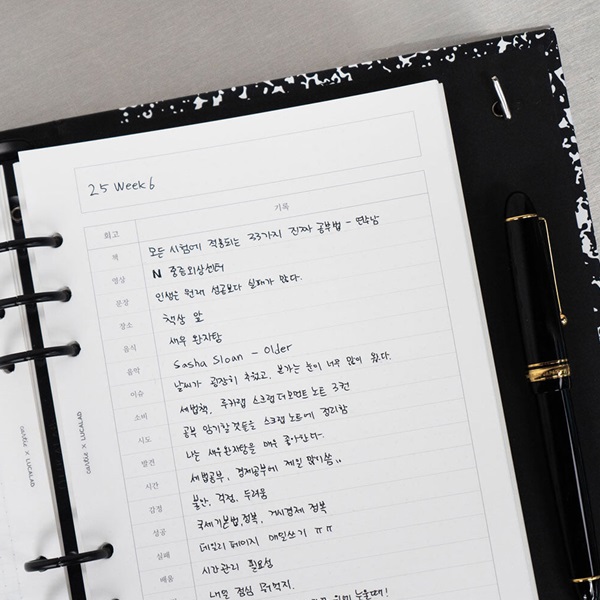 25 Week6
회고 기록
책 모든 시험에 적용되는 33가지 진짜 공부법 -
영상 N 중증외상센터
문장 인생은 원래 성공보다 실패가 많다.
장소 책상 앞
음식 새우 완자탕
음악 Sasha Sloan - Older
이슈 날씨가 굉장히 추웠고, 본가는 눈이 너무 많이 왔다.
소비 세법책, 루카랩 스크랩 더 모먼트 노트 3권
시도 공부 암기할 것들을 스크랩 노트에 정리함
발견 나는 새우완자탕을 매우 좋아한다.
시간 세법공부, 경제공부에 제일 많이 씀..
감정 불안, 걱정, 두려움
성공 국세기본법 정복, 거시경제 정복
실패 데일리 페이지 매일쓰기 ㅠㅠ
배움 시간관리 필요성
내일 점심 뭐먹지.
누울때!
X LUCALAB
X LUCALAB